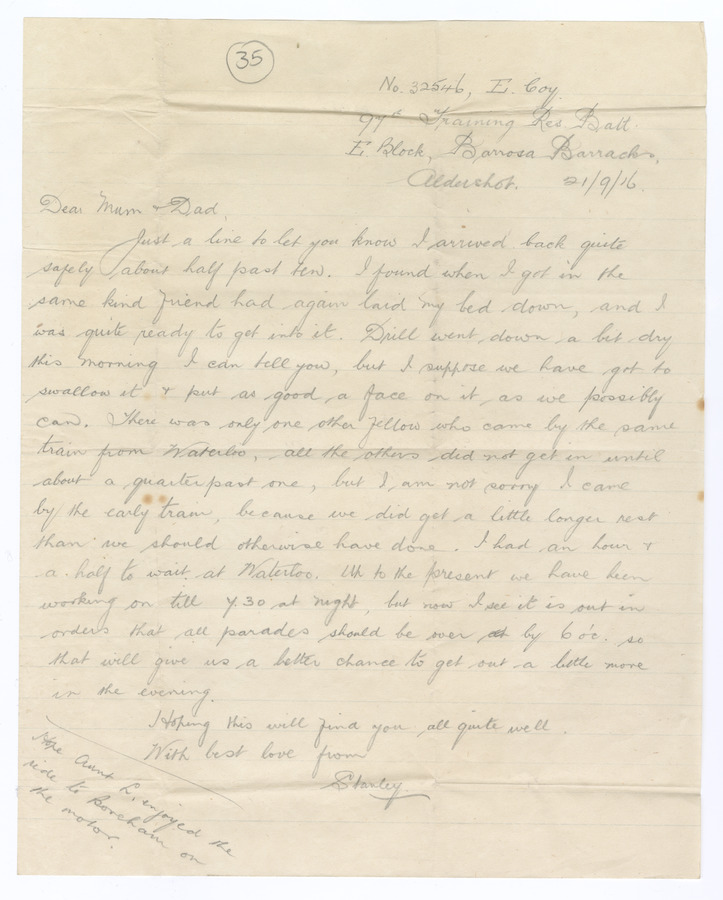 35
No. 32546, E. Coy.
97th Training Res. Batt.
E. Block, Barrosa Barracks,
Aldershot. 21/9/16.
Dear Mum & Dad,
Just a line to let you know I arrived back quite
safely about half past ten. I found when I got in the
same kind friend had again laid my bed down, and I
was quite ready to get into it. Drill went down a bit dry
this morning I can tell you, but I suppose we have got to
swallow it & put as good a face on it as we possibly
can. There was only one other fellow who came by the same
train from Waterloo, all the others did not get in until
about a quarter past one, but I am not sorry I came
by the early train, because we did get a little longer rest
than we should otherwise have done. I had an hour &
a half to wait at Waterloo. Up to the present we have been
working on till 7.30 at night, but now I see it is out in
orders that all parades should be over at by 6 o'c. so
that will give us a better chance to get out a little more
in the evening.
Hoping this will find you all quite well.
With best love from
Stanley
Hope Aunt L. enjoyed the
ride to Boreham on
the motor.